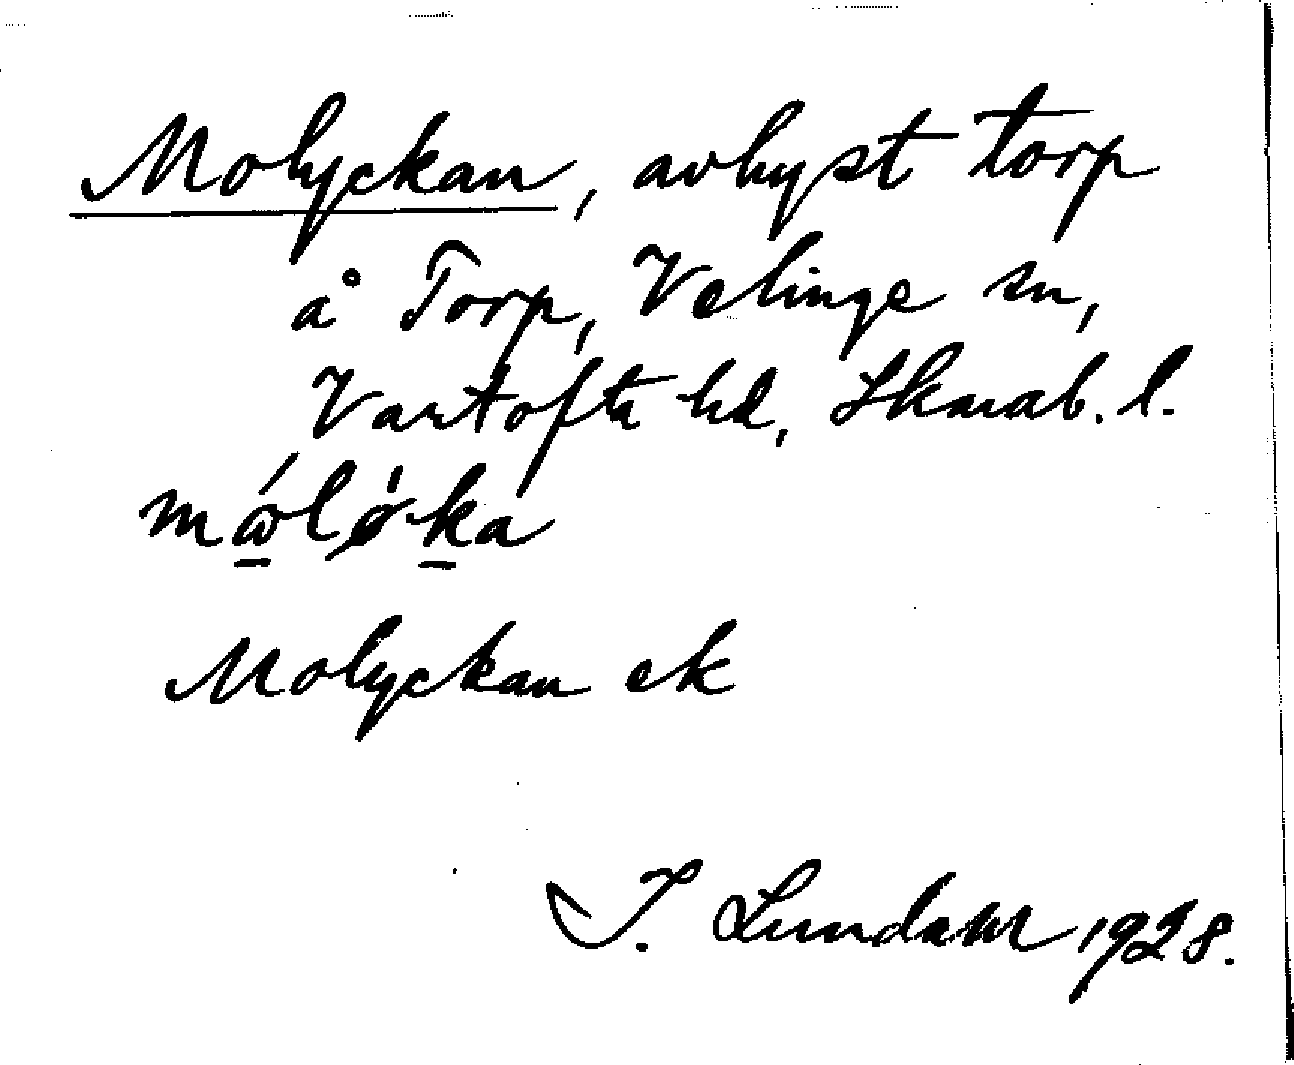 Molyckan, avhyst torp
å Torp, Velinge sn,
Vartofta hd, Skarab. l.
Molyckan ek
I. Lundahl 1928.